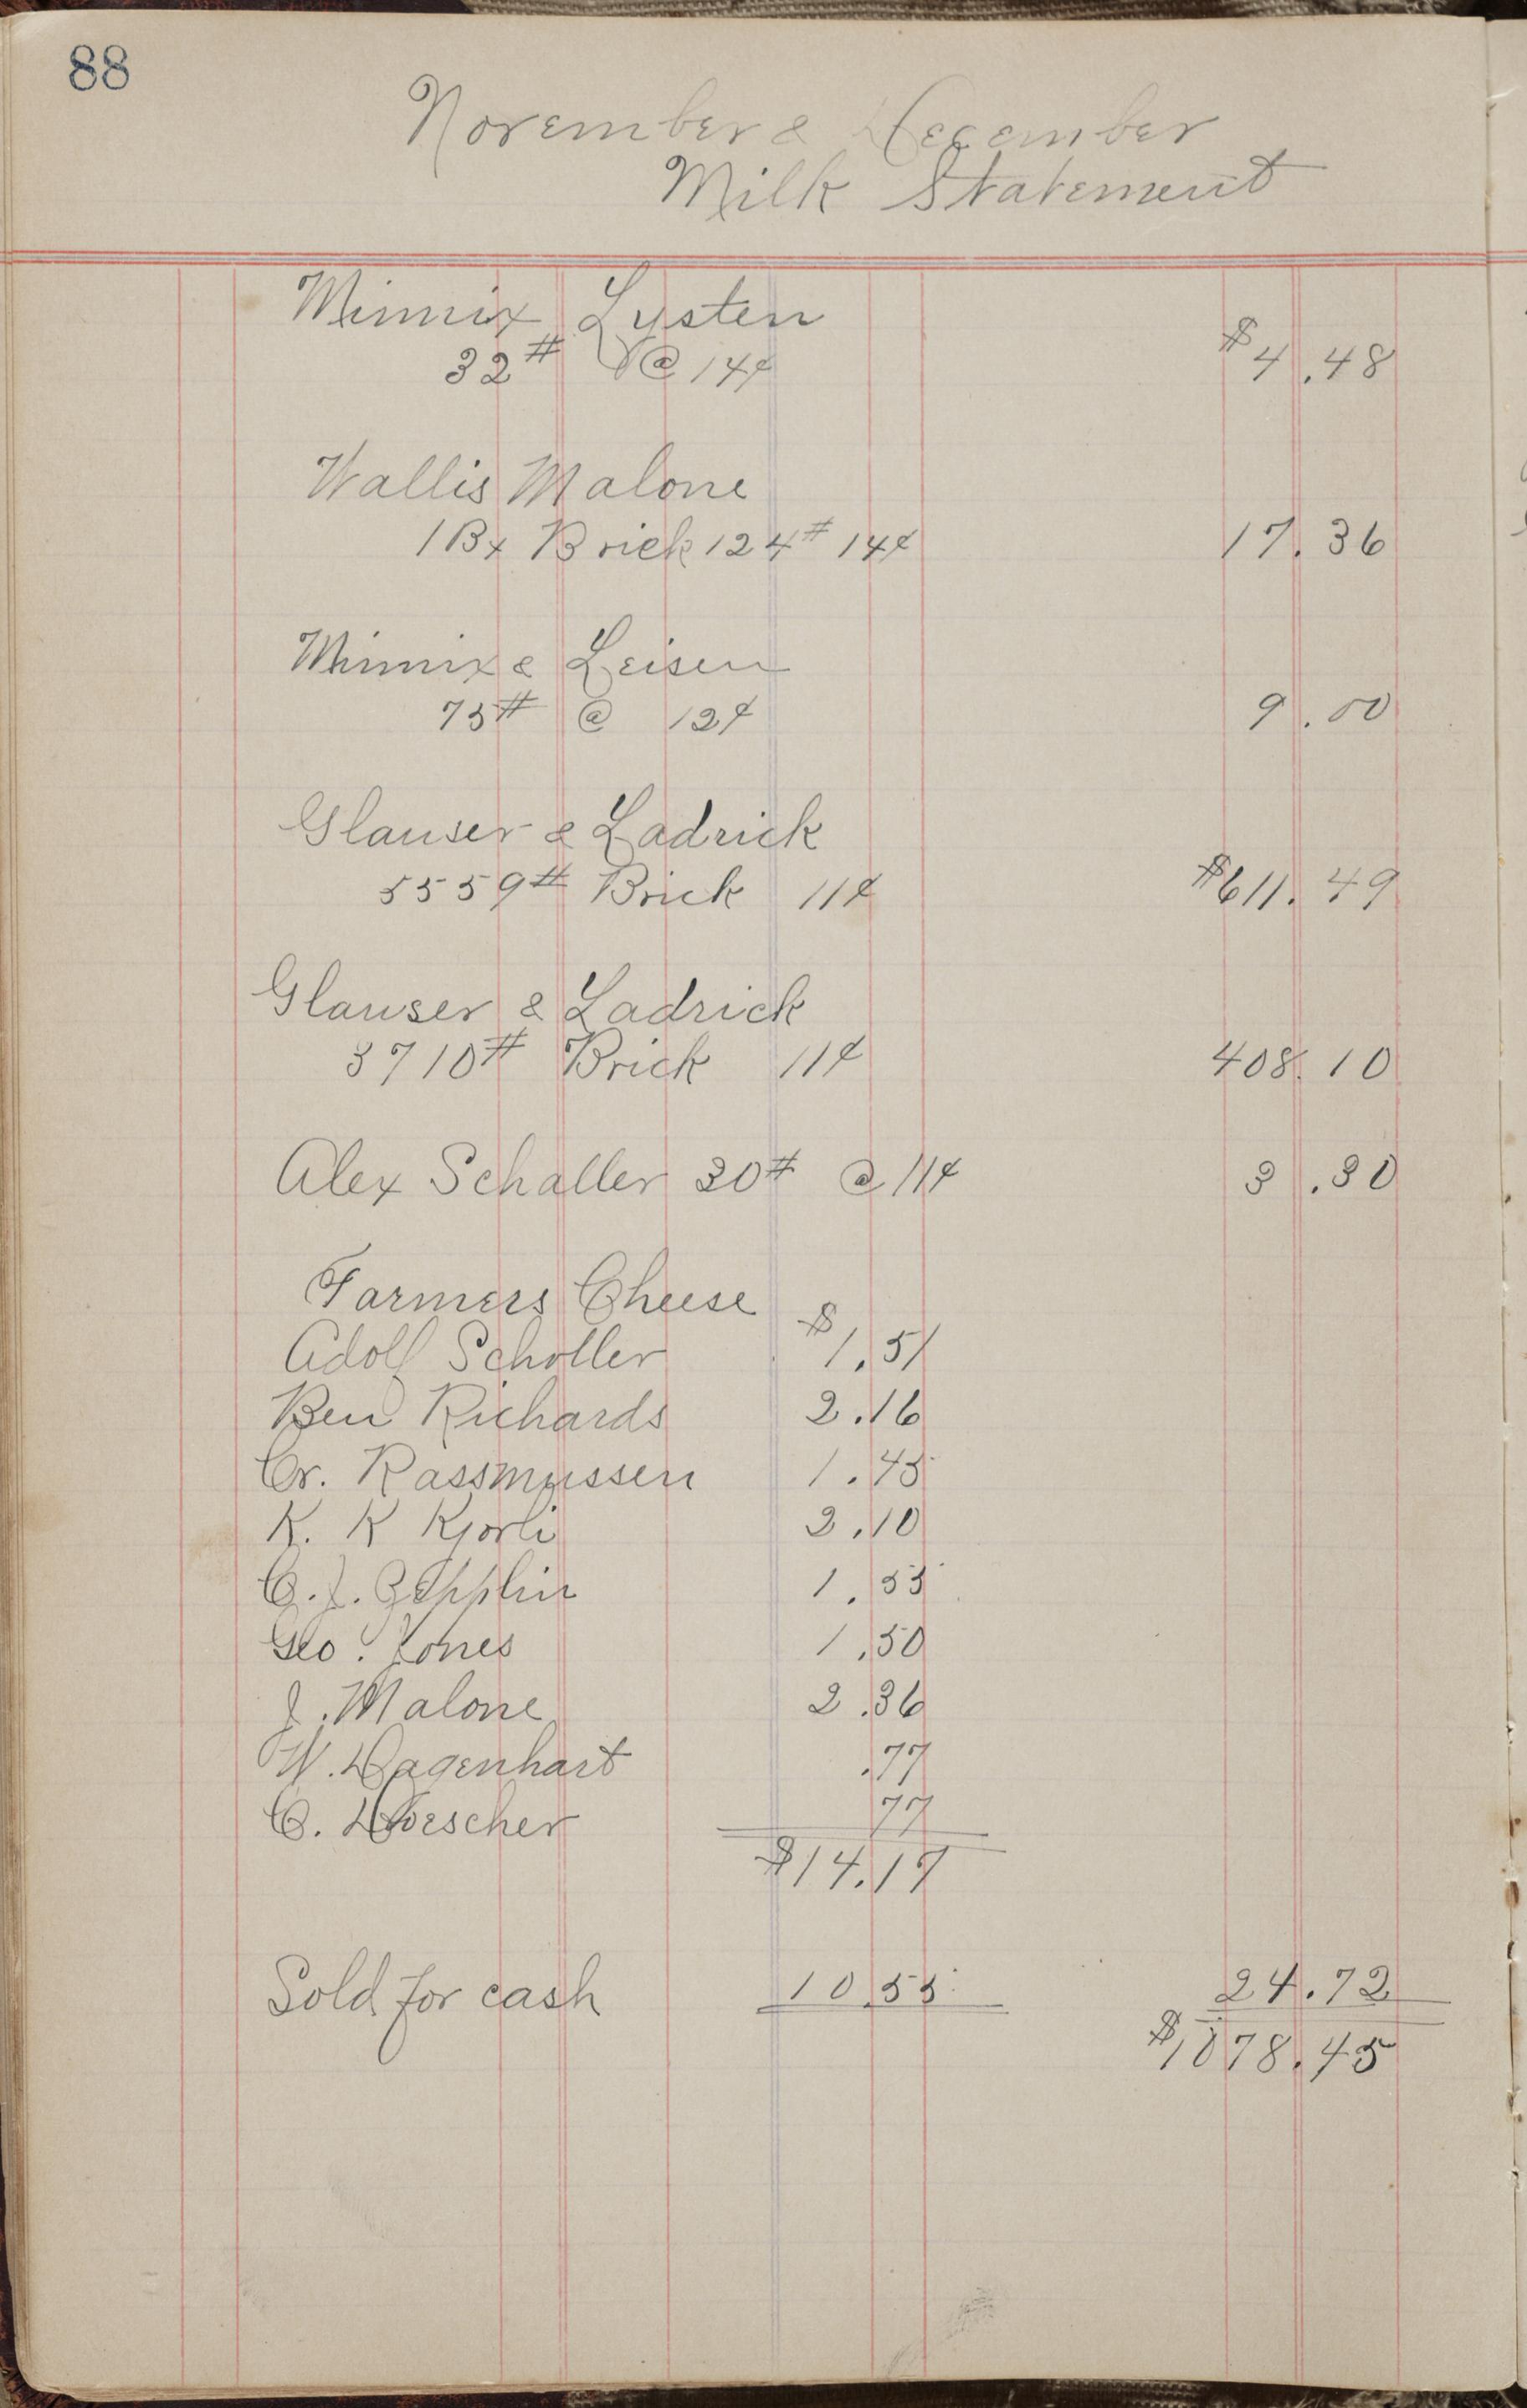 88
November & December
Milk Statement
Minnix Lysten
32# @ 14¢ $4.48
Wallis Malone
1 Bx Brick 124# 14¢ 17.36
Minnix & Leisen
75# @ 12¢ 9.00
Glauser & Ladrick
5559# Brick 11¢ $611.49
Glauser & Ladrick
3710# Brick 11¢ 408.10
Alex Schaller 30# @ 11¢ 3.30
Farmers Cheese
Adolf Scholler $1.51
Ben Richards 2.16
Cr. Rassmussen 1.45
K. K Kjorli 2.10
C. J. Zepplin 1.55
Geo. Jones 1.50
J. Malone 2.36
W. Dagenhart .77
C. Doescher 77
$14.17
Sold for cash 10.55 24.72
$1078.45